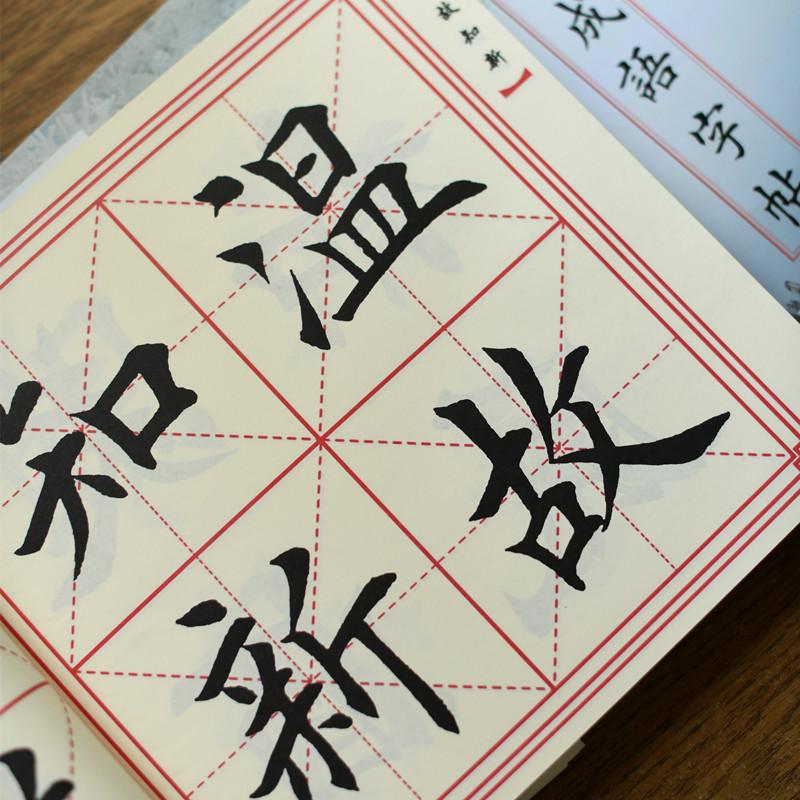 故知新
温故
知新
成語字帖